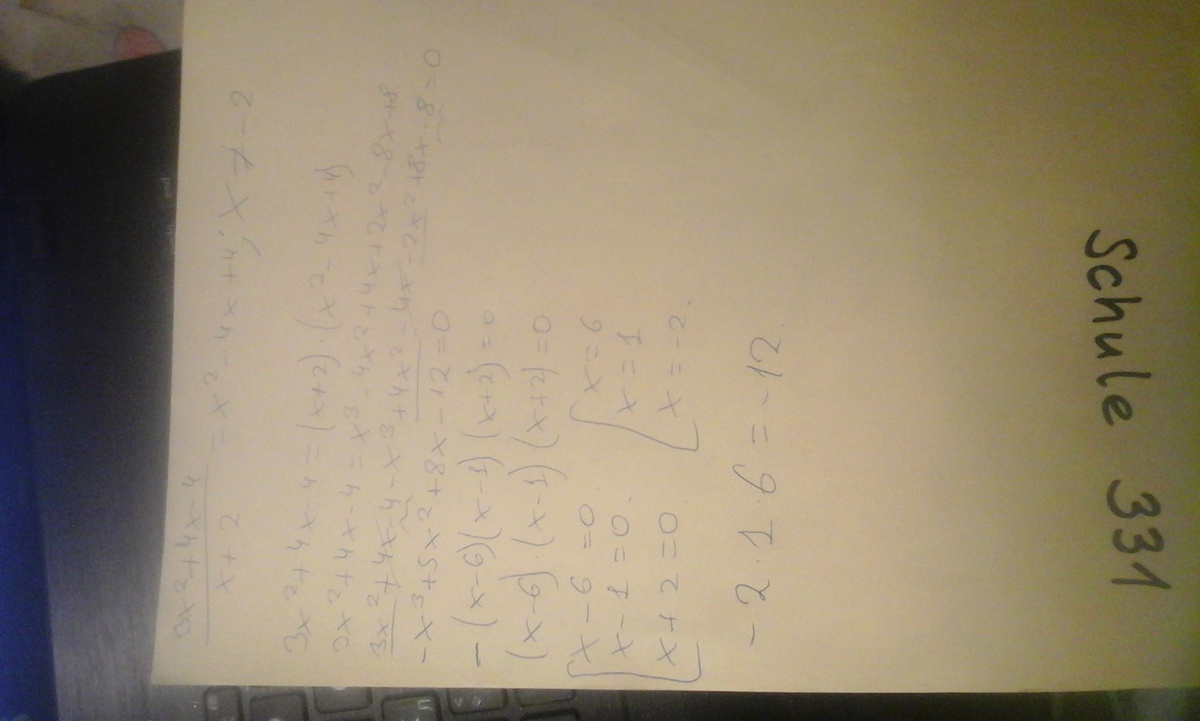 3x²+4x-4
x+2
= x²-4x+4; x ≠ -2
3x²+4x-4=(x+2)·(x²-4x+4)
3x²+4x-4=x³-4x²+4x+2x²-8x+8
3x²+4x-4-x³+4x²-4x-2x²+8x-8=0
-x³+5x²+8x-12=0
-(x-6)(x-1)(x+2)=0
(x-6)·(x-1)(x+2)=0
x-6=0 x=6
x-1=0. x=1
x+2=0. x=-2.
-2·1·6=-12.
Schule 331